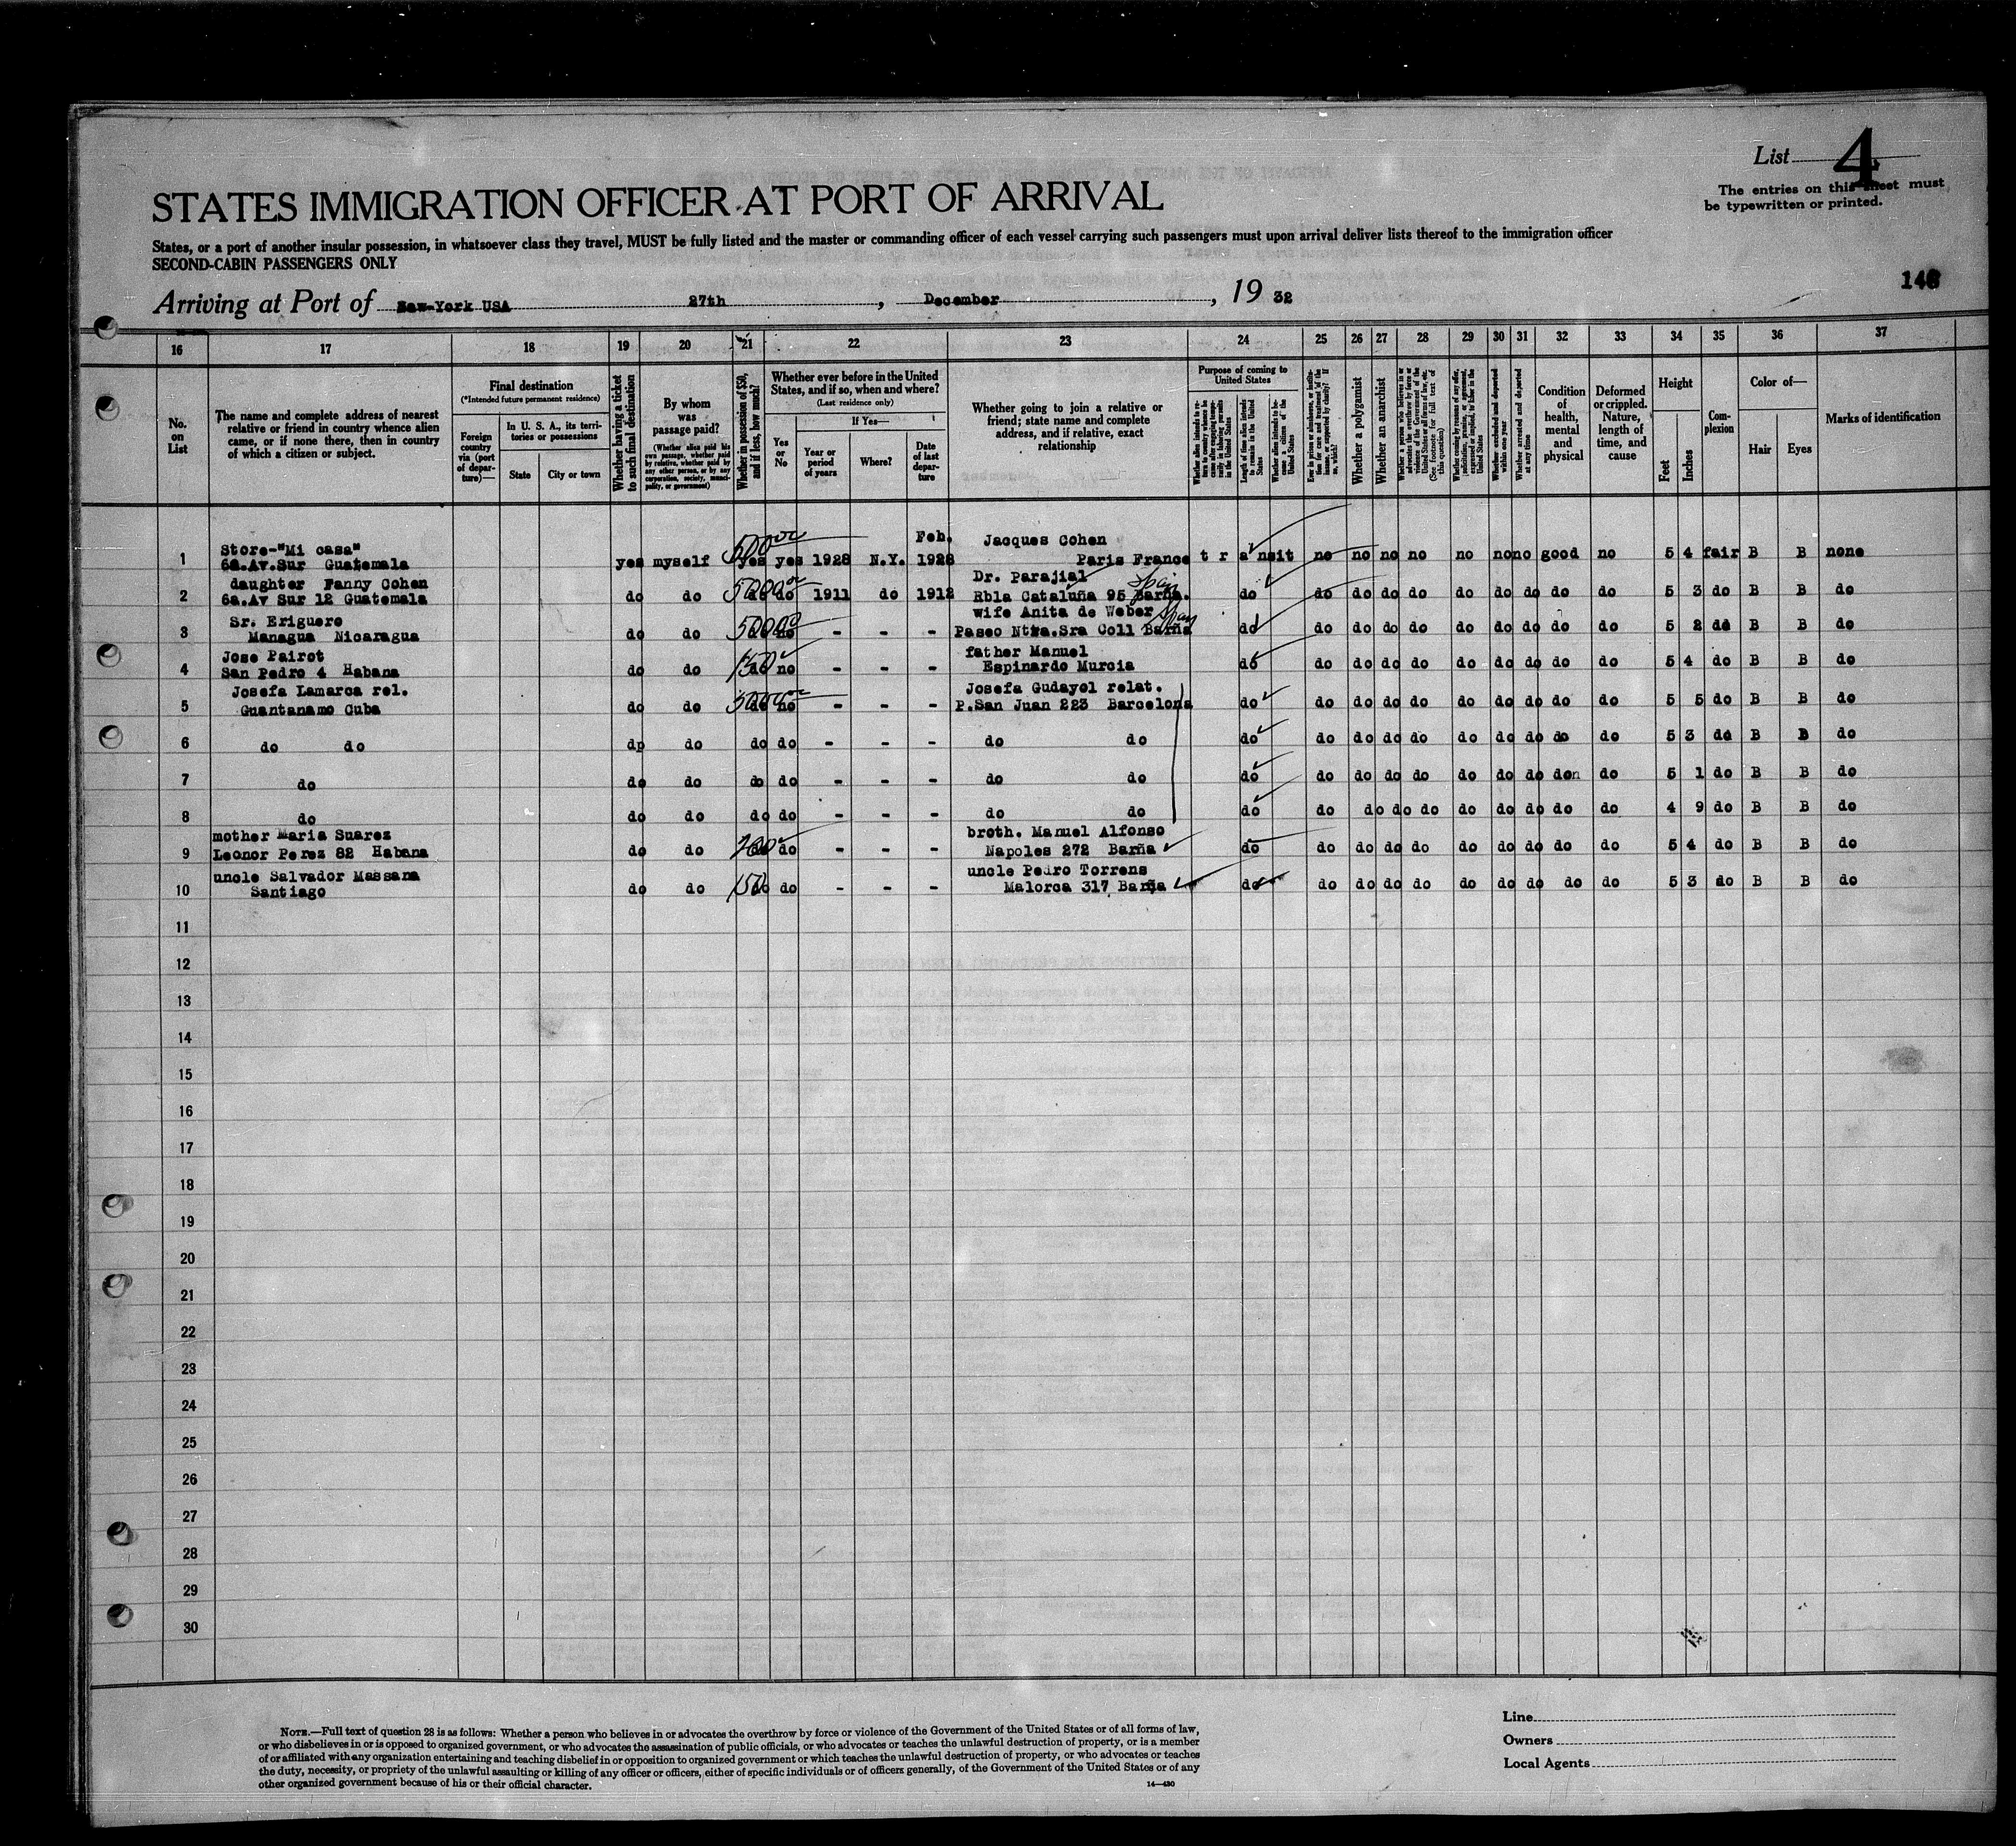 List 4
The entries on this sheet must
be typewritten or printed.
STATES IMMIGRATION OFFICER AT PORT OF ARRIVAL
States, or a port of another insular possession, in whatsoever class they travel, MUST be fully listed and the master or commanding officer of each vessel carrying such passengers must upon arrival deliver lists thereof to the immigration officer
SECOND-CABIN PASSENGERS ONLY
Arriving at Port of New-York USA 27th, December, 1932
16 17 18 19 20 21 22 23 24 25 26 27 28 29 30 31 32 33 34 35 36 37
No.
on
List
The name and complete address of nearest
relative or friend in country whence alien
came, or if none there, then in country
of which a citizen or subject.
Final destination
(*Intended future permanent residence)
Foreign
country
via (port
of depar-
ture)—
In U. S. A., its terri-
tories or possessions
State
City or town
Whether having a ticket
to such final destination
By whom
was
passage paid?
(Whether alien paid his
own passage, whether paid
by relative, whether paid by
any other person, or by any
corporation, society, munici-
pality, or government)
Whether in possession of $50,
and if less, how much?
Whether ever before in the United
States, and if so, when and where?
(Last residence only)
Yes
or
No
If Yes—
Year or
period
of years
Where?
Date
of last
depar-
ture
Whether going to join a relative or
friend; state name and complete
address, and if relative, exact
relationship
Purpose of coming to
United States
Length of time alien intends
to remain in the United
States
Whether alien intends to be-
come a citizen of the
United States
Whether a polygamist
Whether an anarchist
Whether excluded and deported
within one year
Whether arrested and deported
at any time
Condition
of
health,
mental
and
physical
Deformed
or crippled.
Nature,
length of
time, and
cause
Height
Feet
Inches
Com-
plexion
Color of—
Hair
Eyes
Marks of identification
Feb. Jacques Cohen
Store-"Mi casa"
1 6a.Av.Sur Guatemala yes myself yes yes 1928 N.Y. 1928 Paris France transit no no no no no no no good no 5 4 fair B B none
daughter Fanny Cohen Dr. Parajial
2 6a.Av Sur 12 Guatemala do do do do 1911 do 1912 Rbla Cataluña 95 Barña. Spain do do do do do do do do do do 5 3 do B B do
Sr. Eriguero wife Anita de Weber Span
3 Managua Nicaragua do do do no - - - Paseo Ntra.Sra Coll Barña do do do do do do do do do do 5 2 do B B do
Jose Pairot father Manuel
4 San Pedro 4 Habana do do do no - - - Espinardo Murcia do do do do do do do do do do 5 4 do B B do
Josefa Lamarca rel. Josefa Gudayol relat.
5 Guantanamo Cuba do do do no - - - P.San Juan 223 Barcelona do do do do do do do do do do 5 5 do B B do
6 do do do do do do - - - do do do do do do do do do do do do 5 3 do B B do
7 do do do do do - - - do do do do do do do do do do don do 5 1 do B B do
8 do do do do do - - - do do do do do do do do do do do do 4 9 do B B do
mother Maria Suarez broth. Manuel Alfonso
9 Leonor Perez 82 Habana do do do do - - - Napoles 272 Barña do do do do do do do do do do 5 4 do B B do
uncle Salvador Massana uncle Pedro Torrens
10 Santiago do do 150 do do - - - Malorca 317 Barña do do do do do do do do do do 5 3 do B B do
11
12
13
14
15
16
17
18
19
20
21
22
23
24
25
26
27
28
29
30
NOTE.—Full text of question 28 is as follows: Whether a person who believes in or advocates the overthrow by force or violence of the Government of the United States or of all forms of law,
or who disbelieves in or is opposed to organized government, or who advocates the assassination of public officials, or who advocates or teaches the unlawful destruction of property, or is a member
of or affiliated with any organization entertaining and teaching disbelief in or opposition to organized government or which teaches the unlawful destruction of property, or who advocates or teaches
the duty, necessity, or propriety of the unlawful assaulting or killing of any officer or officers, either of specific individuals or of officers generally, of the Government of the United States or of any
other organized government because of his or their official character.
14—430
Line
Owners
Local Agents